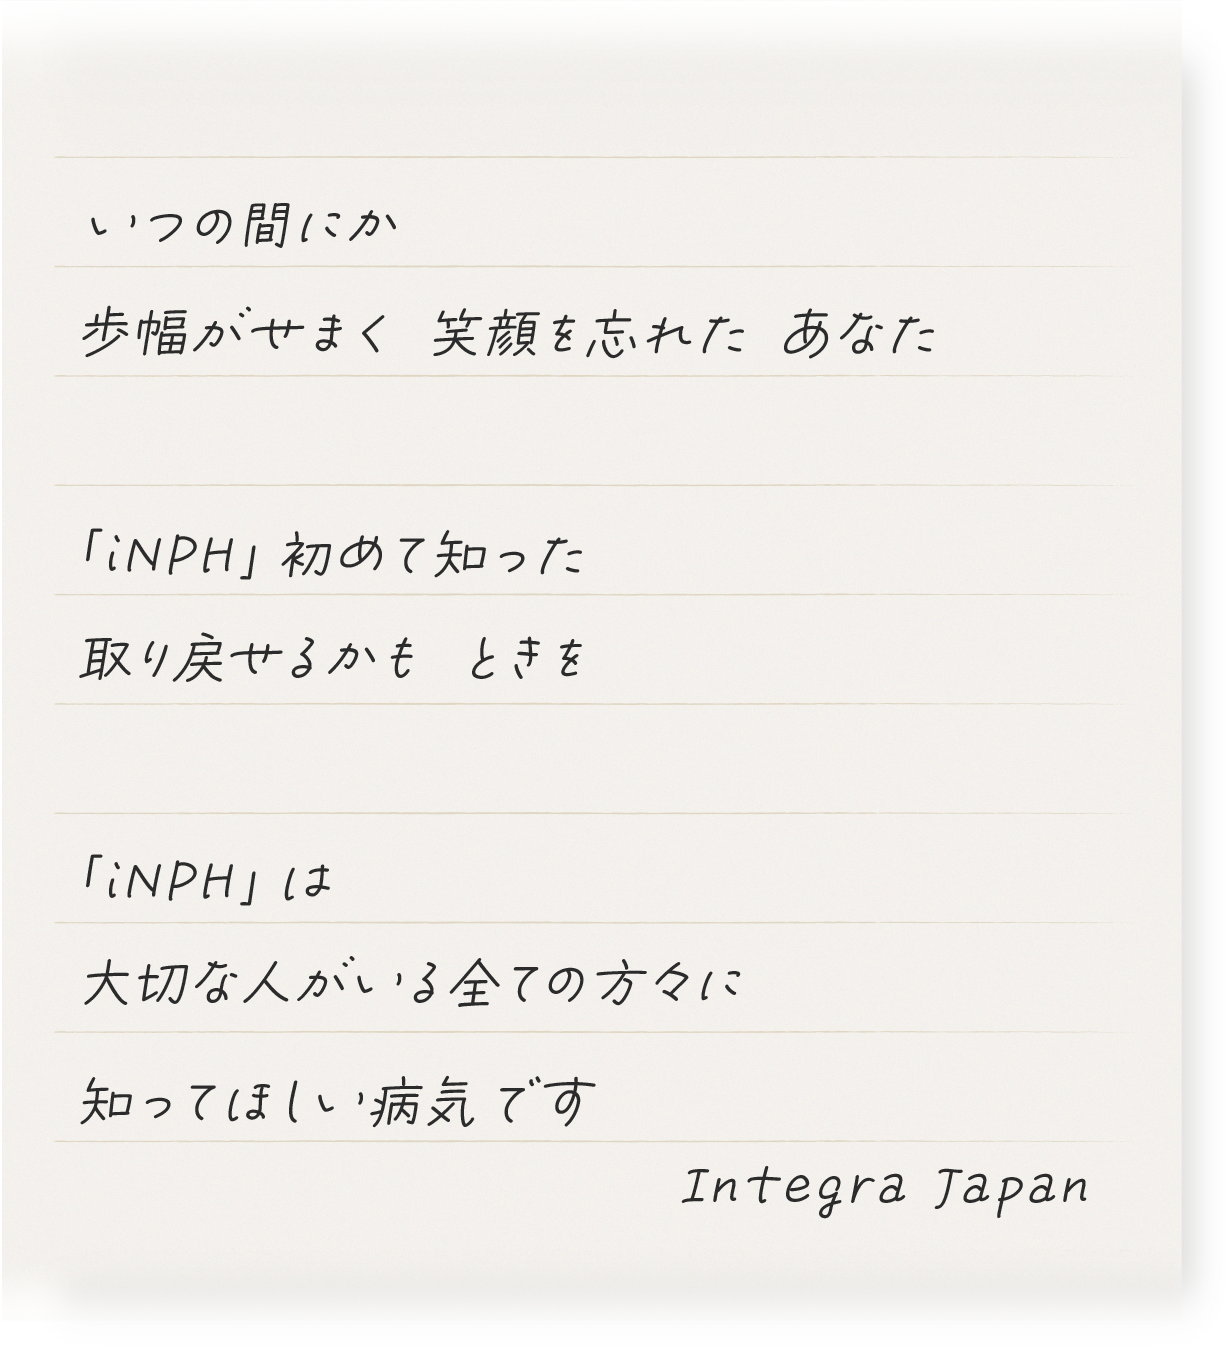 いつの間にか
歩幅がせまく 笑顔を忘れた あなた
「iNPH」初めて知った
取り戻せるかも ときを
「iNPH」は
大切な人がいる全ての方々に
知ってほしい病気です
Integra Japan